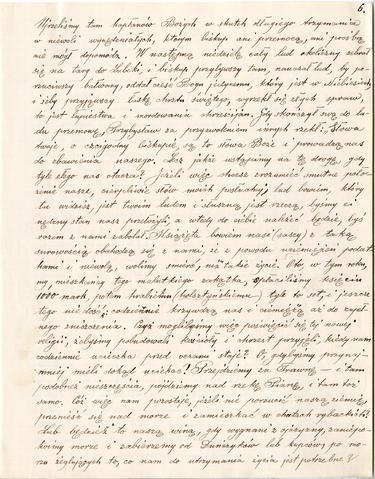 6.
Ujrzeliśmy tam kapłanów Bożych w skutek długiego trzymania
w niewoli wynędzniałych, którym biskup ani przemocą, ani prośbą
nie mógł dopomódz. W następną niedzielę cały lud okoliczny zebrał
się na targ do Lubeki, i biskup przybywszy tam, nauczał lud, by po-
rzuciwszy bałwany, oddał cześć Bogu jedynemu, który jest w Niebiesiech
i żeby przyjąwszy łaskę chrztu świętego, wyrzekł się złych spraw,
to jest łupiestwa i mordowania chrześcijan. Gdy skończył mowę do lu-
du przemową, Przybysław za przyzwoleniem innych rzekł: Słowa
twoje, o czcigodny biskupie, są to słowa Boże i prowadzą nas
do zbawienia naszego. Lecz jakże wstąpimy na tę drogę, gdy
tyle złego nas otacza? Jeżeli więc chcesz zrozumieć smutne poło-
żenie nasze, cierpliwie słów moich posłuchaj; lud bowiem, który
tu widzisz, jest twoim ludem i słuszną jest rzeczą, byśmy ci
nędzny stan nasz przełożyli, a wtedy do ciebie należeć będzie, byś
razem z nami zabolał. Książęta bowiem nasi (sascy) z taką
surowością obchodzą się z nami, że z powodu uciemiężeń podat-
kami i niewolą, wolimy śmierć, niż takie życie. Oto, w tym roku,
my, mieszkańcy tego malutkiego zakątka, zapłaciliśmy księciu
1000 mark, potem hrabiemu (holsztyńskiemu) tyle to set, i jeszcze
tego nie dość; codziennie krzywdzą nas i ciemiężą aż do zupeł-
nego zniszczenia. Czyż moglibyśmy więc poświęcić się tej nowej
religii, żebyśmy pobudowali kościoły i chrzest przyjęli, kiedy nam
codziennie ucieczka przed oczami stoi? O, gdybyśmy przynaj-
mniej mieli dokąd uciekać! Przejdziemy za Trawnę – i tam
podobneż nieszczęścia, pójdziemy nad rzekę Pianę, i tam toż
samo. Cóż więc nam pozostaje, jeżeli nie porzucić naszą ziemię,
przenieść się nad morze i zamieszkać w chatach rybackich?
Lub będzież to naszą winą, gdy wygnani z ojczyzny, zaniepo-
koimy morze i zabierzemy od Duńczyków lub kupców, po mo-
rzu żeglujących to, co nam do utrzymania życia jest potrzebne?